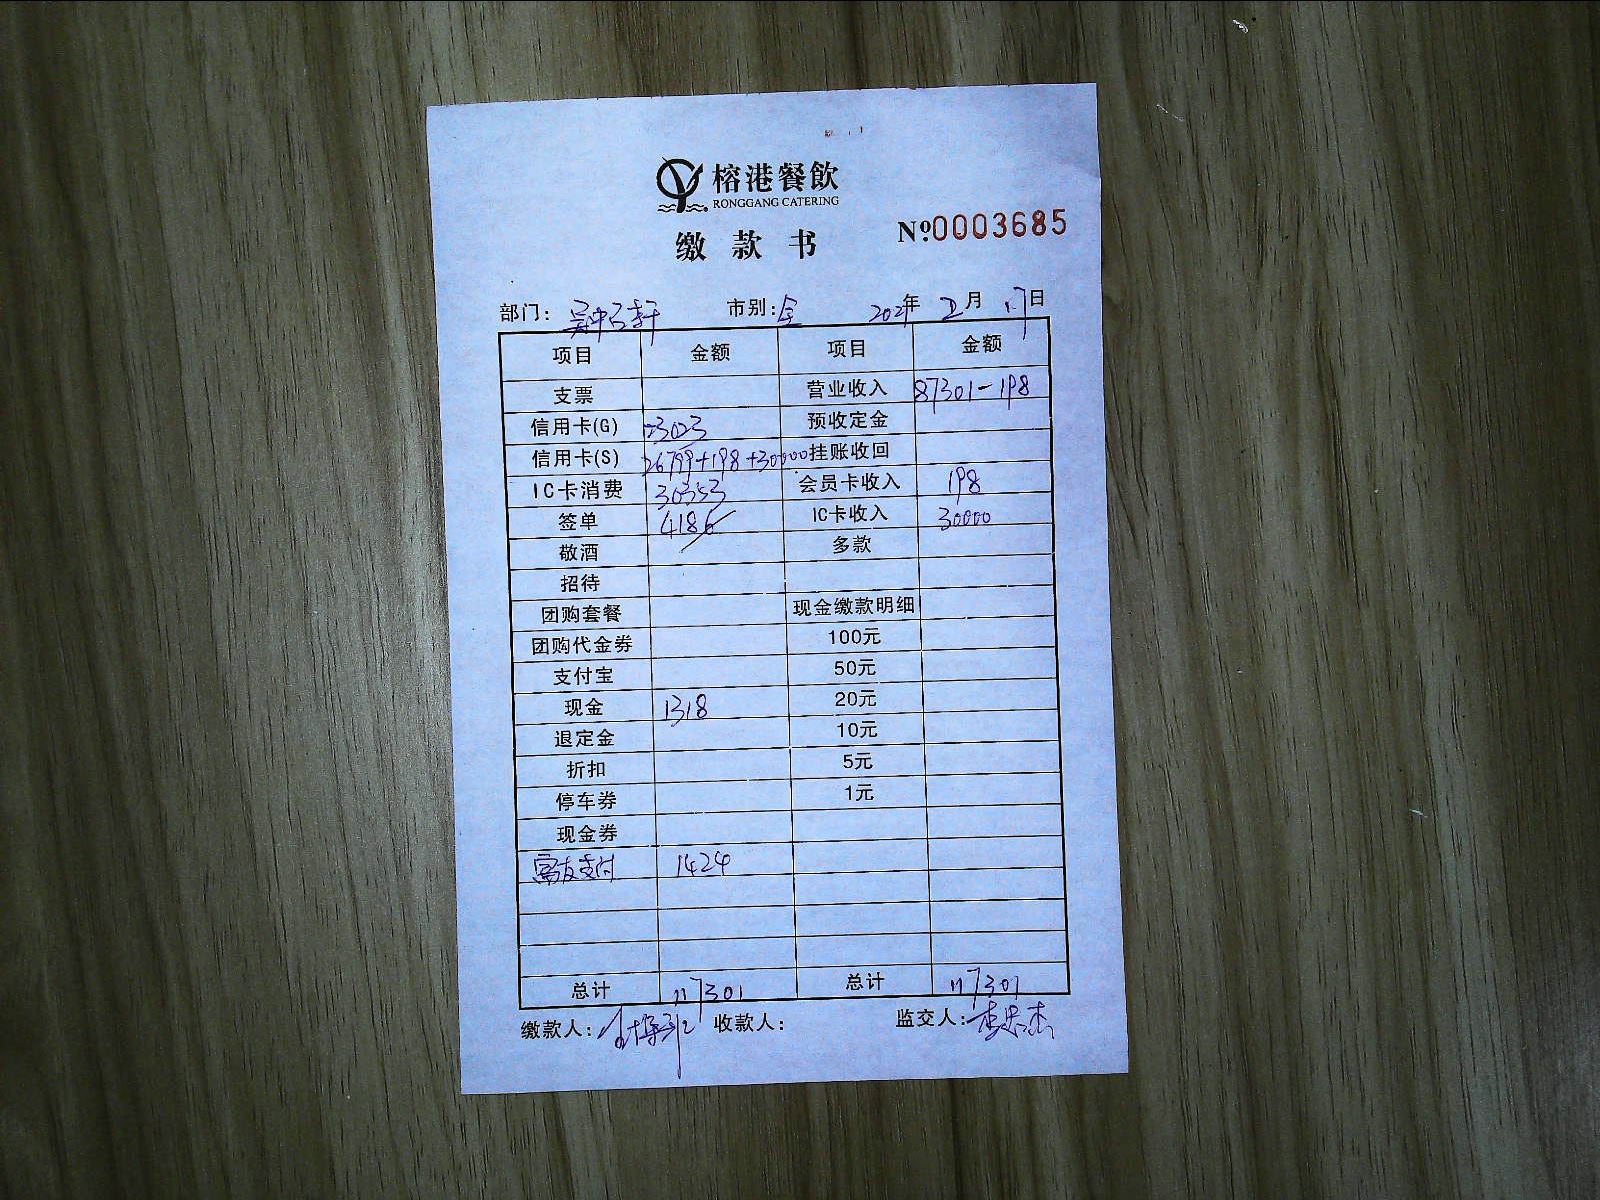 榕港餐飲
RONGGANG CATERING
缴款书
№0003685
部门: 市别:全 2021年 月 17日
项目 金额 项目 金额
支票 营业收入 87301-198
信用卡(G) 23023 预收定金
信用卡(S) 26799+198+30000 挂账收回
IC卡消费 30353 会员卡收入 198
签单 4186 IC卡收入 30000
敬酒 多款
招待
团购套餐 现金缴款明细
团购代金券 100元
支付宝 50元
现金 1318 20元
退定金 10元
折扣 5元
停车券 1元
现金券
支付 1424
总计 117301 总计 117301
缴款人: 收款人: 监交人: